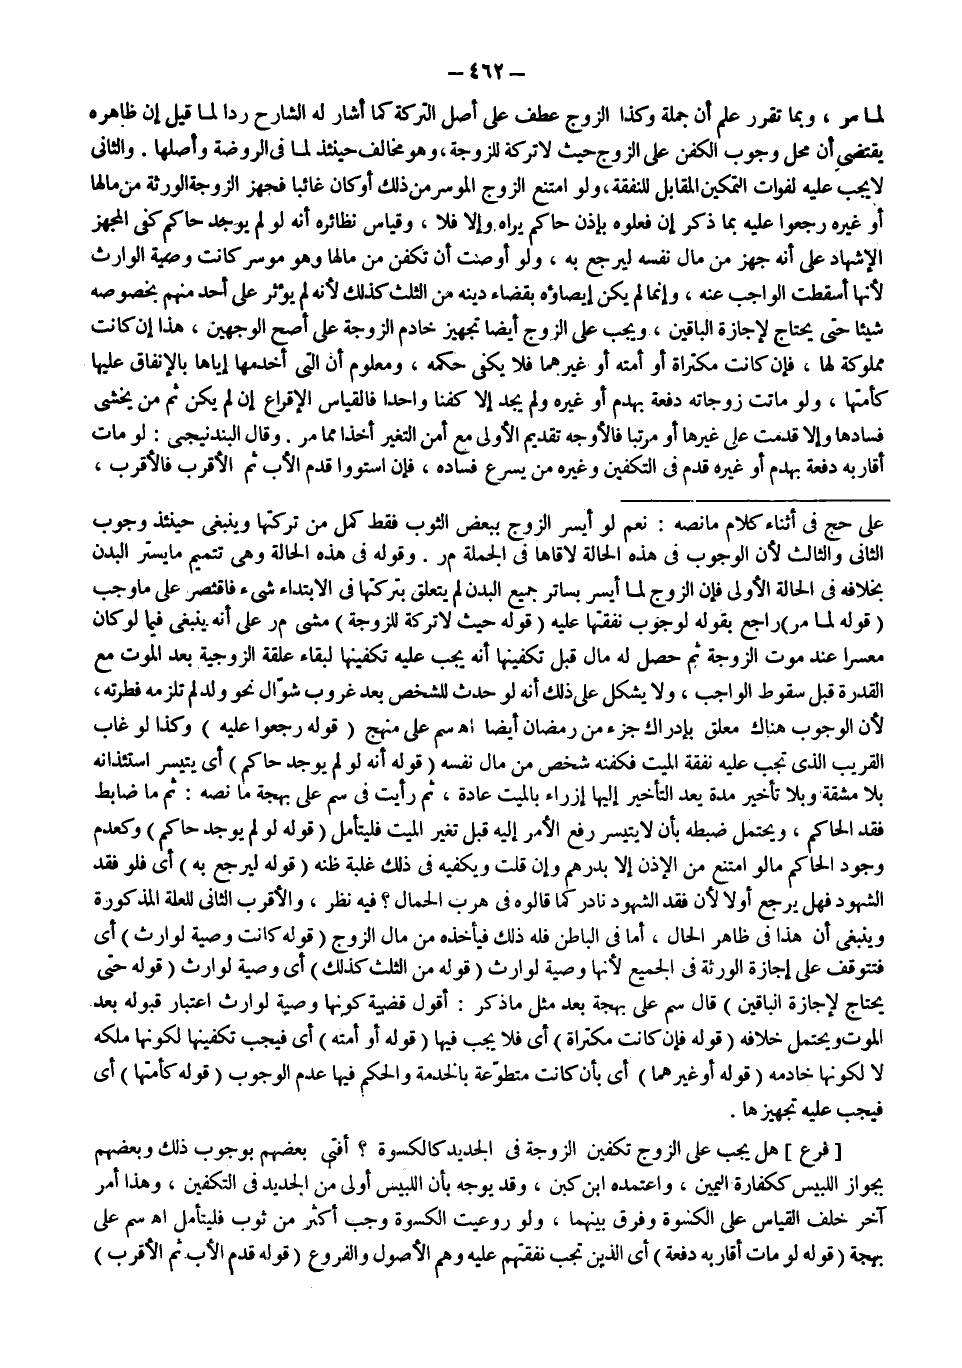 – ٤٦٢ –
لما مر ، وبما تقرر علم أن جملة وكذا الزوج عطف على أصل التركة كما أشار له الشارح ردا لما قيل إن ظاهره
يقتضى أن محل وجوب الكفن على الزوج حيث لا تركة للزوجة ، وهو مخالف حينئذ لما فى الروضة وأصلها . والثانى
لايجب عليه لفوات التمكين المقابل للنفقة ، ولو امتنع الزوج الموسر من ذلك أو كان غائبا فجهز الزوجة الورثة من مالها
أو غيره رجعوا عليه بما ذكر إن فعلوه بإذن حاكم يراه وإلا فلا ، وقياس نظائره أنه لو لم يوجد حاكم كفى المجهز
الإشهاد على أنه جهز من مال نفسه ليرجع به ، ولو أوصت أن تكفن من مالها وهو موسر كانت وصية الوارث
لأنها أسقطت الواجب عنه ، وإنما لم يكن إيصاؤه بقضاء دينه من الثلث كذلك لأنه لم يؤثر على أحد منهم بخصوصه
شيئا حتى يحتاج لإجازة الباقين ، ويجب على الزوج أيضا تجهيز خادم الزوجة على أصح الوجهين ، هذا إن كانت
مملوكة لها ، فإن كانت مكتراة أو أمته أو غيرهما فلا يكفى حكمه ، ومعلوم أن التى أخدمها إياها بالإنفاق عليها
كأمتها ، ولو ماتت زوجاته دفعة بهدم أو غيره ولم يجد إلا كفنا واحدا فالقياس الإقراع إن لم يكن ثم من يخشى
فسادها وإلا قدمت على غيرها أو مرتبا فالأوجه تقديم الأولى مع أمن التغير أخذا مما مر . وقال البندنيجى : لو مات
أقاربه دفعة بهدم أو غيره قدم فى التكفين وغيره من يسرع فساده ، فإن استووا قدم الأب ثم الأقرب فالأقرب ،
على حج فى أثناء كلام مانصه : نعم لو أيسر الزوج ببعض الثوب فقط كمل من تركتها وينبغى حينئذ وجوب
الثانى والثالث لأن الوجوب فى هذه الحالة لاقاها فى الجملة مر . وقوله فى هذه الحالة وهى تتميم مايستر البدن
بخلافه فى الحالة الأولى فإن الزوج لما أيسر بساتر جميع البدن لم يتعلق بتركتها فى الابتداء شىء فاقتصر على ماوجب
( قوله لما مر ) راجع بقوله لوجوب نفقتها عليه ( قوله حيث لاتركة للزوجة ) مشى مر على أنه ينبغى فيما لو كان
معسرا عند موت الزوجة ثم حصل له مال قبل تكفينها أنه يجب عليه تكفينها لبقاء علقة الزوجية بعد الموت مع
القدرة قبل سقوط الواجب ، ولا يشكل على ذلك أنه لو حدث للشخص بعد غروب شوّال نحو ولد لم تلزمه فطرته ،
لأن الوجوب هناك معلق بإدراك جزء من رمضان أيضا اه سم على منهج ( قوله رجعوا عليه ) وكذا لو غاب
القريب الذى تجب عليه نفقة الميت فكفنه شخص من مال نفسه ( قوله أنه لو لم يوجد حاكم ) أى يتيسر استئذانه
بلا مشقة وبلا تأخير مدة يعد التأخير إليها إزراء بالميت عادة ، ثم رأيت فى سم على بهجة ما نصه : ثم ما ضابط
فقد الحاكم ، ويحتمل ضبطه بأن لايتيسر رفع الأمر إليه قبل تغير الميت فليتأمل ( قوله لو لم يوجد حاكم ) وكعدم
وجود الحاكم مالو امتنع من الإذن إلا بدرهم وإن قلت ويكفيه فى ذلك غلبة ظنه ( قوله ليرجع به ) أى فلو فقد
الشهود فهل يرجع أولا لأن فقد الشهود نادر كما قالوه فى هرب الجمال ؟ فيه نظر ، والأقرب الثانى للعلة المذكورة
وينبغى أن هذا فى ظاهر الحال ، أما فى الباطن فله ذلك فيأخذه من مال الزوج ( قوله كانت وصية لوارث ) أى
فتتوقف على إجازة الورثة فى الجميع لأنها وصية لوارث ( قوله من الثلث كذلك ) أى وصية لوارث ( قوله حتى
يحتاج لإجازة الباقين ) قال سم على بهجة بعد مثل ماذكر : أقول قضية كونها وصية لوارث اعتبار قبوله بعد
الموت ويحتمل خلافه ( قوله فإن كانت مكتراة ) أى فلا يجب فيها ( قوله أو أمته ) أى فيجب تكفينها لكونها ملكه
لا لكونها خادمه ( قوله أو غيرهما ) أى بأن كانت متطوّعة بالخدمة والحكم فيها عدم الوجوب ( قوله كأمتها ) أى
فيجب عليه تجهيزها .
[ فرع ] هل يجب على الزوج تكفين الزوجة فى الجديد كالكسوة ؟ أفتى بعضهم بوجوب ذلك وبعضهم
بجواز اللبيس ككفارة اليمين ، واعتمده ابن كبن ، وقد يوجه بأن اللبيس أولى من الجديد فى التكفين ، وهذا أمر
آخر خلف القياس على الكسوة وفرق بينهما ، ولو روعيت الكسوة وجب أكثر من ثوب فليتأمل اه سم على
بهجة ( قوله لو مات أقاربه دفعة ) أى الذين تجب نفقتهم عليه وهم الأصول والفروع ( قوله قدم الأب ثم الأقرب )